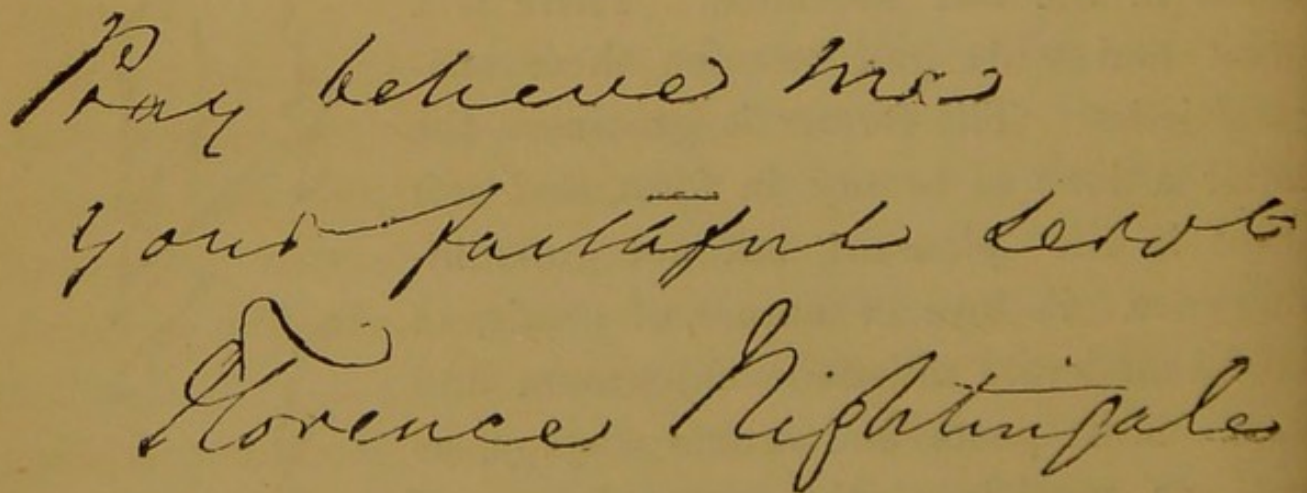 Pray believe me
your faithful servt
Florence Nightingale